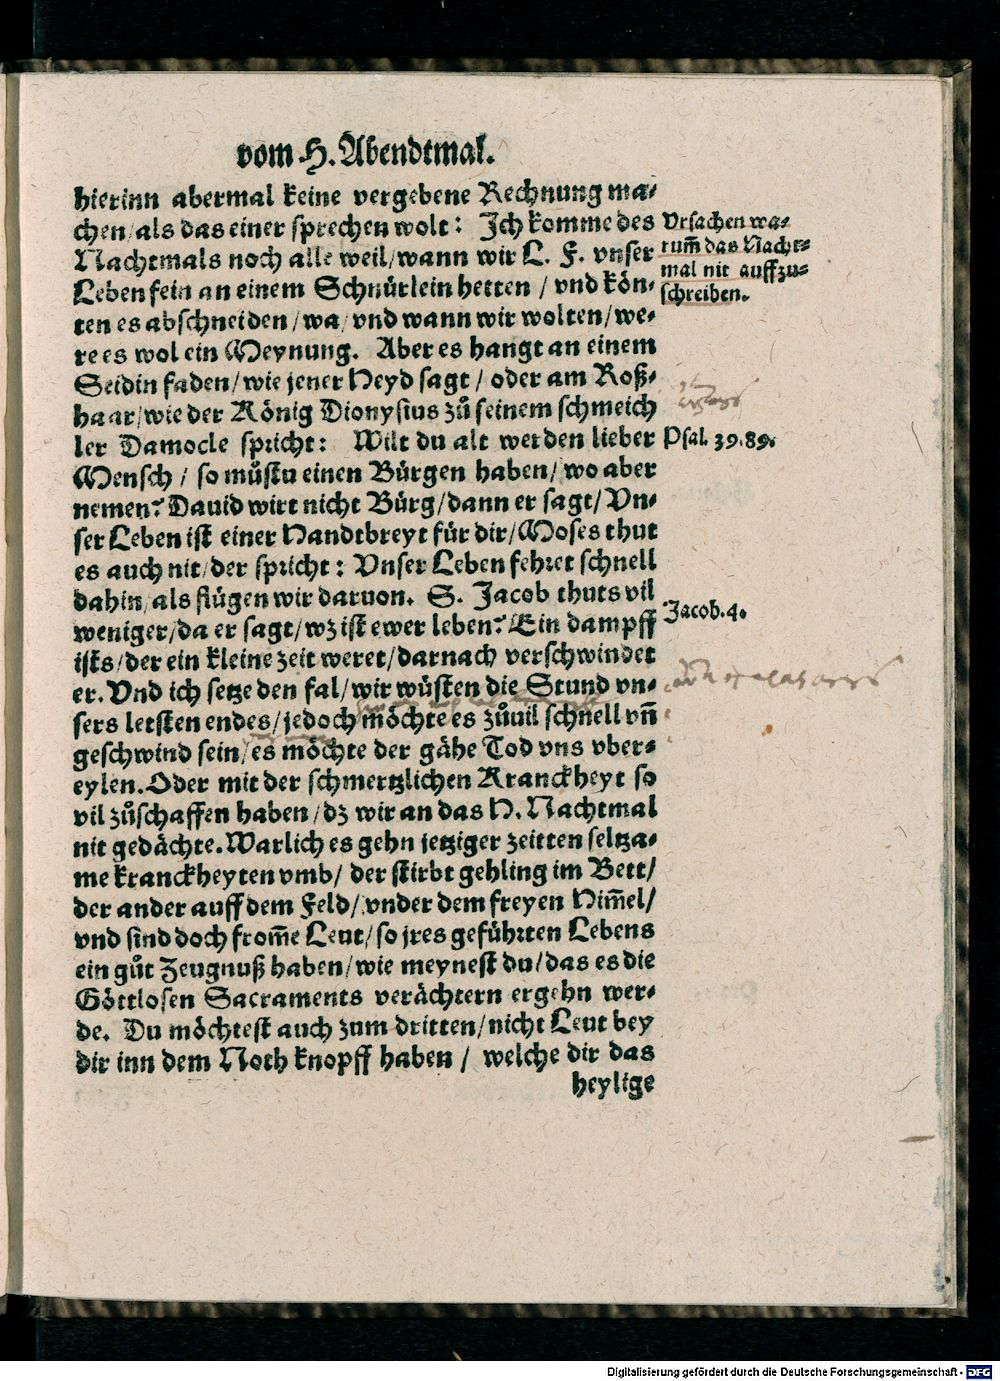 vom H. Abendtmal.
hierinn abermal keine vergebene Rechnung ma-
chen/als das einer sprechen wolt: Ich komme des
Nachtmals noch alle weil/wann wir L. F. vnser
Leben fein an einem Schnürlein hetten / vnd kön-
ten es abschneiden/wa/vnd wann wir wolten/we-
re es wol ein Meynung. Aber es hangt an einem
Seidin faden/wie jener Heyd sagt/ oder am Roß-
haar/wie der König Dionysius zů seinem schmeich
ler Damocle spricht: Wilt du alt werden lieber
Mensch / so můstu einen Bürgen haben/wo aber
nemen? Dauid wirt nicht Bürg/dann er sagt/Vn-
ser Leben ist einer Handtbreyt für dir/Moses thut
es auch nit/der spricht: Vnser Leben fehret schnell
dahin/als flügen wir daruon. S. Jacob thuts vil
weniger/da er sagt/wz ist ewer leben? Ein dampff
ists/der ein kleine zeit weret/darnach verschwindet
er. Vnd ich setze den fal/wir wüsten die Stund vn-
sers letsten endes/jedoch möchte es zůuil schnell vn̄
geschwind sein/es möchte der gähe Tod vns vber-
eylen. Oder mit der schmertzlichen Kranckheyt so
vil zůschaffen haben/dz wir an das H. Nachtmal
nit gedächte. Warlich es gehn jetziger zeitten seltza-
me kranckheyten vmb/ der stirbt gehling im Bett/
der ander auff dem Feld/vnder dem freyen Him̄el/
vnd sind doch from̄e Leut/so jres geführten Lebens
ein gůt Zeugnuß haben/wie meynest du/das es die
Göttlosen Sacraments verächtern ergehn wer-
de. Du möchtest auch zum dritten/nicht Leut bey
dir inn dem Noth knopff haben / welche dir das
heylige
Vrsachen wa-
rum̄ das Nacht-
mal nit auffzu-
schreiben.
Psal. 39.89.
Jacob. 4.
Digitalisierung gefördert durch die Deutsche Forschungsgemeinschaft - DFG